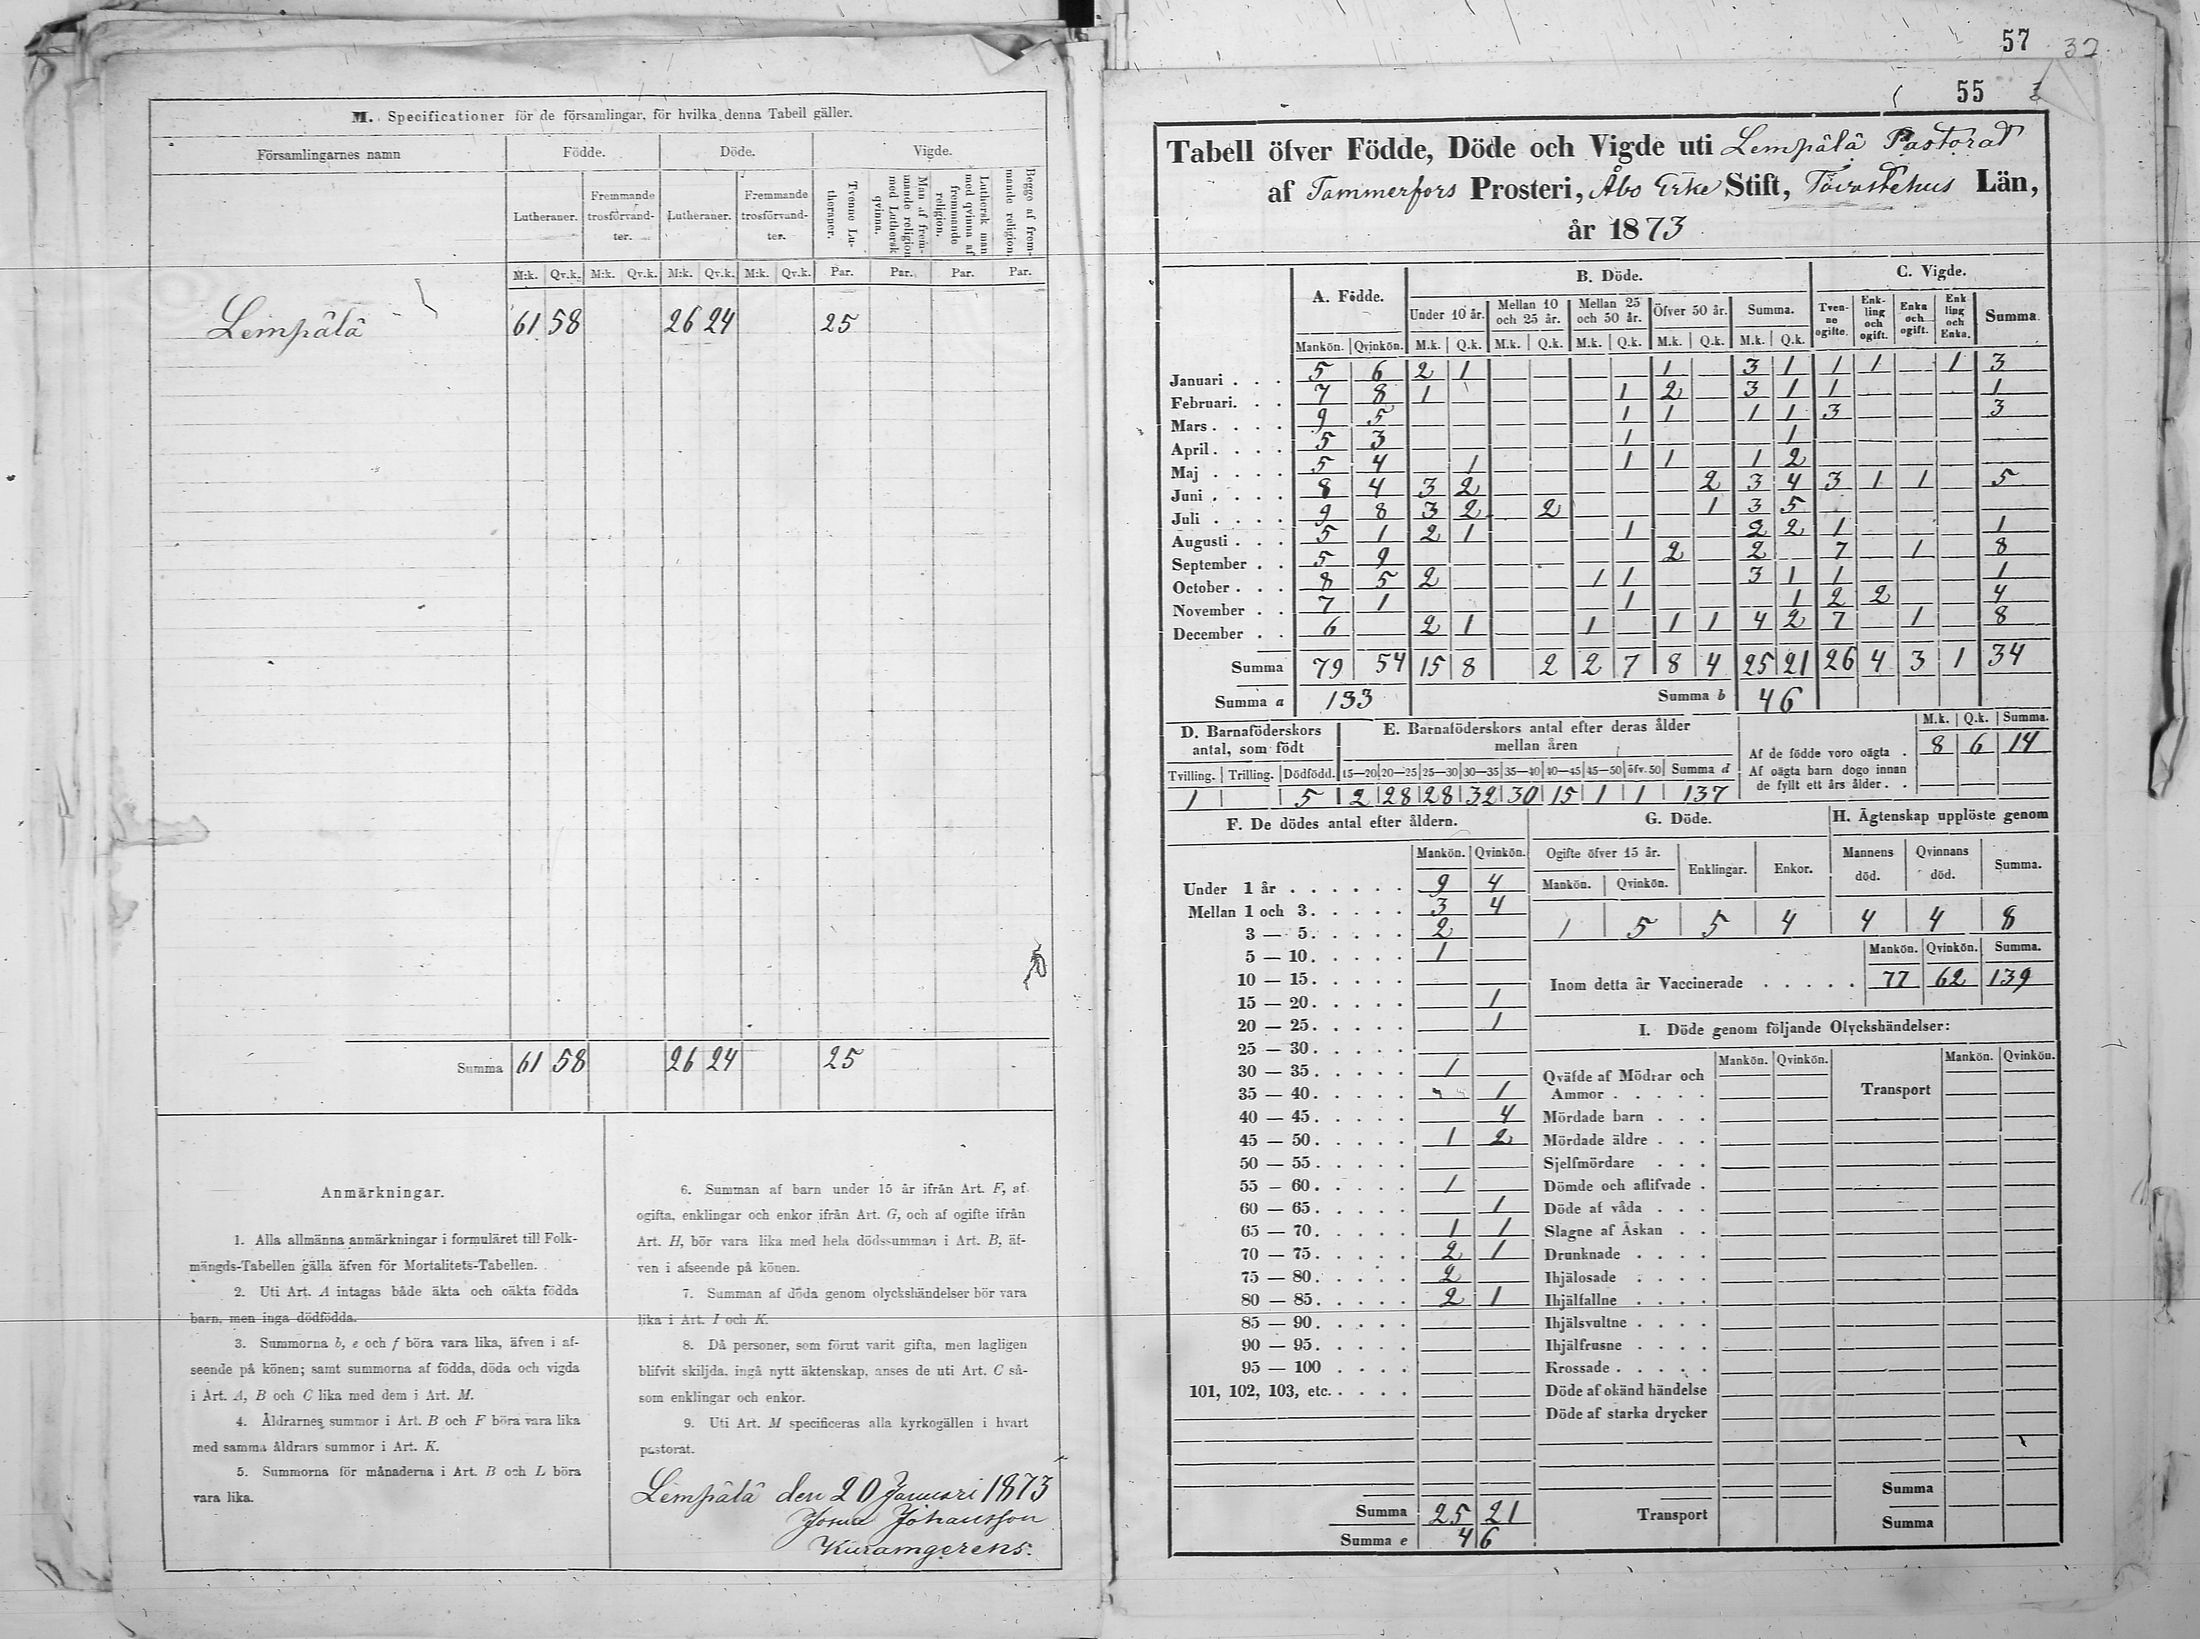 M. Specificationer för de församlingar, för hvilka denna Tabell gäller.
Församlingarnes namn Födde. Döde. Vigde.
Lutheraner. Fremmande trosförvandter. Lutheraner. Fremmande trosförvandter. Tvenne Lutheraner. Man af fremmande religion med Luthersk qvinna. Luthersk man med qvinna af fremmande religion. Begge af fremmande religion.
M:k. Qv.k. M:k. Qv.k. M:k. Qv.k. M:k. Qv.k. Par. Par. Par. Par.
Lempälä 61 58 26 24 25
Summa 61 58 26 24 25
Anmärkningar.
1. Alla allmänna anmärkningar i formuläret till Folk-
mängds-Tabellen gälla äfven för Mortalitets-Tabellen.
2. Uti Art. A intagas både äkta och oäkta födda
barn, men inga dödfödda.
3. Summorna b, e och f böra vara lika, äfven i af-
seende på könen; samt summorna af födda, döda och vigda
i Art. A, B och C lika med dem i Art. M.
4. Åldrarnes summor i Art. B och F böra vara lika
med samma åldrars summor i Art. K.
5. Summorna för månaderna i Art. B och L böra
vara lika.
6. Summan af barn under 15 år ifrån Art. F, af
ogifta, enklingar och enkor ifrån Art. G, och af ogifte ifrån
Art. H, bör vara lika med hela dödssumman i Art. B, äf-
ven i afseende på könen.
7. Summan af döda genom olyckshändelser bör vara
lika i Art. I och K.
8. Då personer, som förut varit gifta, men lagligen
blifvit skiljda, ingå nytt äktenskap, anses de uti Art. C så-
som enklingar och enkor.
9. Uti Art. M specificeras alla kyrkogällen i hvart
pastorat.
Lempälä den 20 Januari 1873
Josua Johansson
57 32
55
Tabell öfver Födde, Döde och Vigde uti Lempälä Pastorat
af Tammerfors Prosteri, Åbo Erke Stift, Tavastehus Län,
år 1873
A. Födde. B. Döde. C. Vigde.
Under 10 år. Mellan 10 och 25 år. Mellan 25 och 50 år. Öfver 50 år. Summa. Tvenne ogifte. Enkling och ogift. Enka och ogift. Enkling och Enka. Summa.
Mankön. Qvinkön. M.k. Q.k. M.k. Q.k. M.k. Q.k. M.k. Q.k. M.k. Q.k.
Januari . . . 5 6 2 1 1 3 1 1 1 1 3
Februari. . . 7 8 1 1 2 3 1 1 1
Mars . . . . 9 5 1 1 1 1 3 3
April . . . . 5 3 1 1
Maj . . . . 5 4 1 1 1 1 2
Juni . . . . 8 4 3 2 2 3 4 3 1 1 5
Juli . . . . 9 8 3 2 2 1 3 5
Augusti . . . 5 1 2 1 1 2 2 1 1
September . . 5 9 2 2 7 1 8
October . . . 8 5 2 1 1 3 1 1 1
November . . 7 1 1 1 2 2 4
December . . 6 2 1 1 1 1 4 2 7 1 8
Summa 79 54 15 8 2 2 7 8 4 25 21 26 4 3 1 34
Summa a 133 Summa b 46
D. Barnaföderskors antal, som födt
Tvilling. Trilling. Dödfödd.
1 5
E. Barnaföderskors antal efter deras ålder mellan åren
15—20 20—25 25—30 30—35 35—40 40—45 45—50 öfv. 50 Summa d
2 28 28 32 30 15 1 1 137
M.k. Q.k. Summa.
Af de födde voro oägta . 8 6 14
Af oägta barn dogo innan
de fyllt ett års ålder . .
F. De dödes antal efter åldern.
Mankön. Qvinkön.
Under 1 år . . . . . . 9 4
Mellan 1 och 3 . . . . . 3 4
3 — 5 . . . . . 2
5 — 10 . . . . . 1
10 — 15 . . . . .
15 — 20 . . . . . 1
20 — 25 . . . . . 1
25 — 30 . . . . .
30 — 35 . . . . . 1
35 — 40 . . . . . 1
40 — 45 . . . . . 4
45 — 50 . . . . . 1 2
50 — 55 . . . . .
55 — 60 . . . . . 1
60 — 65 . . . . . 1
65 — 70 . . . . . 1 1
70 — 75 . . . . . 2 1
75 — 80 . . . . . 2
80 — 85 . . . . . 2 1
85 — 90 . . . . .
90 — 95 . . . . .
95 — 100 . . . .
101, 102, 103, etc. . . . .
Summa 25 21
Summa e 46
G. Döde.
Ogifte öfver 15 år. Enklingar. Enkor.
Mankön. Qvinkön.
1 5 5 4
H. Ägtenskap upplöste genom
Mannens död. Qvinnans död. Summa.
4 4 8
Mankön. Qvinkön. Summa.
Inom detta år Vaccinerade . . . . . 77 62 139
I. Döde genom följande Olyckshändelser:
Mankön. Qvinkön. Mankön. Qvinkön.
Qväfde af Mödrar och
Ammor . . . . . Transport
Mördade barn . . .
Mördade äldre . . .
Sjelfmördare . . .
Dömde och aflifvade .
Döde af våda . . .
Slagne af Åskan . .
Drunknade . . . .
Ihjälosade . . . .
Ihjälfallne . . . .
Ihjälsvultne . . . .
Ihjälfrusne . . . .
Krossade . . . . .
Döde af okänd händelse
Döde af starka drycker
Summa
Transport Summa